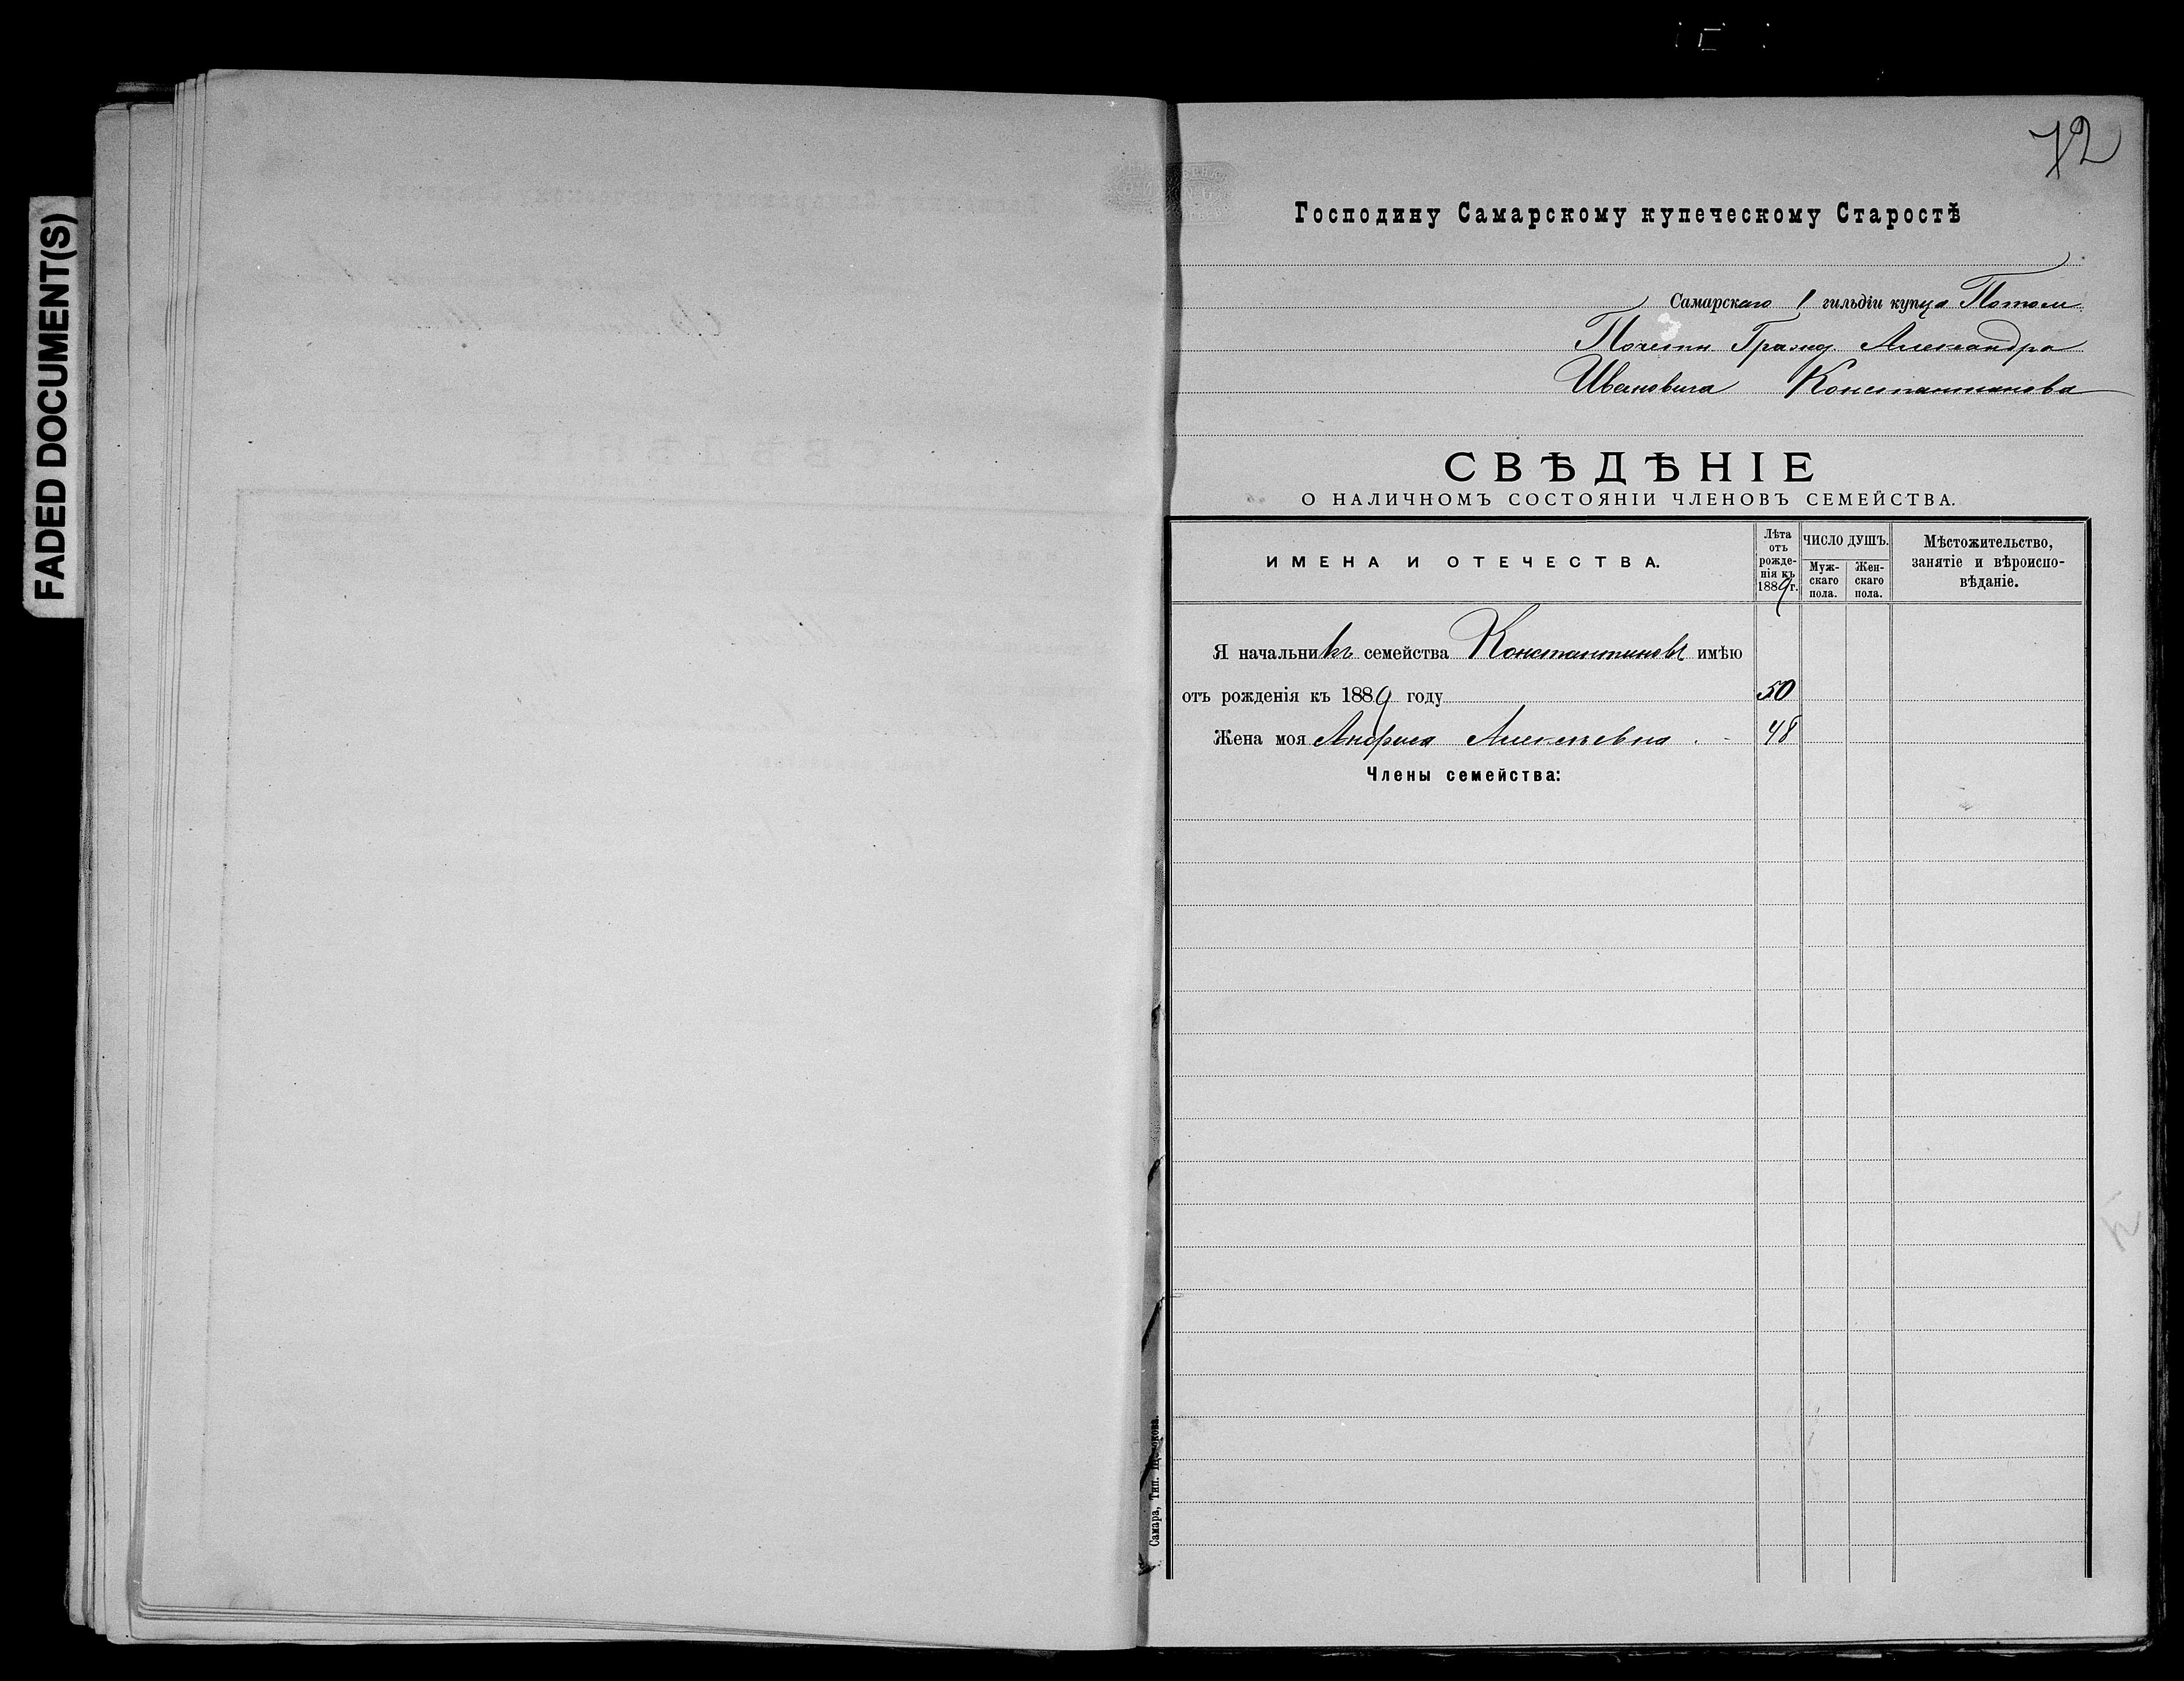 FADED DOCUMENT(S)
72
Господину Самарскому купеческому Старостѣ
Самарскаго 1 гильдіи купца Потом.
Почетн. Гражд. Александра
Ивановича Константинова
СВѢДѢНІЕ
О НАЛИЧНОМЪ СОСТОЯНІИ ЧЛЕНОВЪ СЕМЕЙСТВА.
ИМЕНА И ОТЕЧЕСТВА.
Лѣта
отъ
рожде-
нія къ
1889 г.
ЧИСЛО ДУШЪ.
Муж-
скаго
пола.
Жен-
скаго
пола.
Мѣстожительство,
занятіе и вѣроиспо-
вѣданіе.
Я начальникъ семейства Константиновъ имѣю
отъ рожденія къ 1889 году 50
Жена моя Алексѣевна 48
Члены семейства:
Самара, Тип.